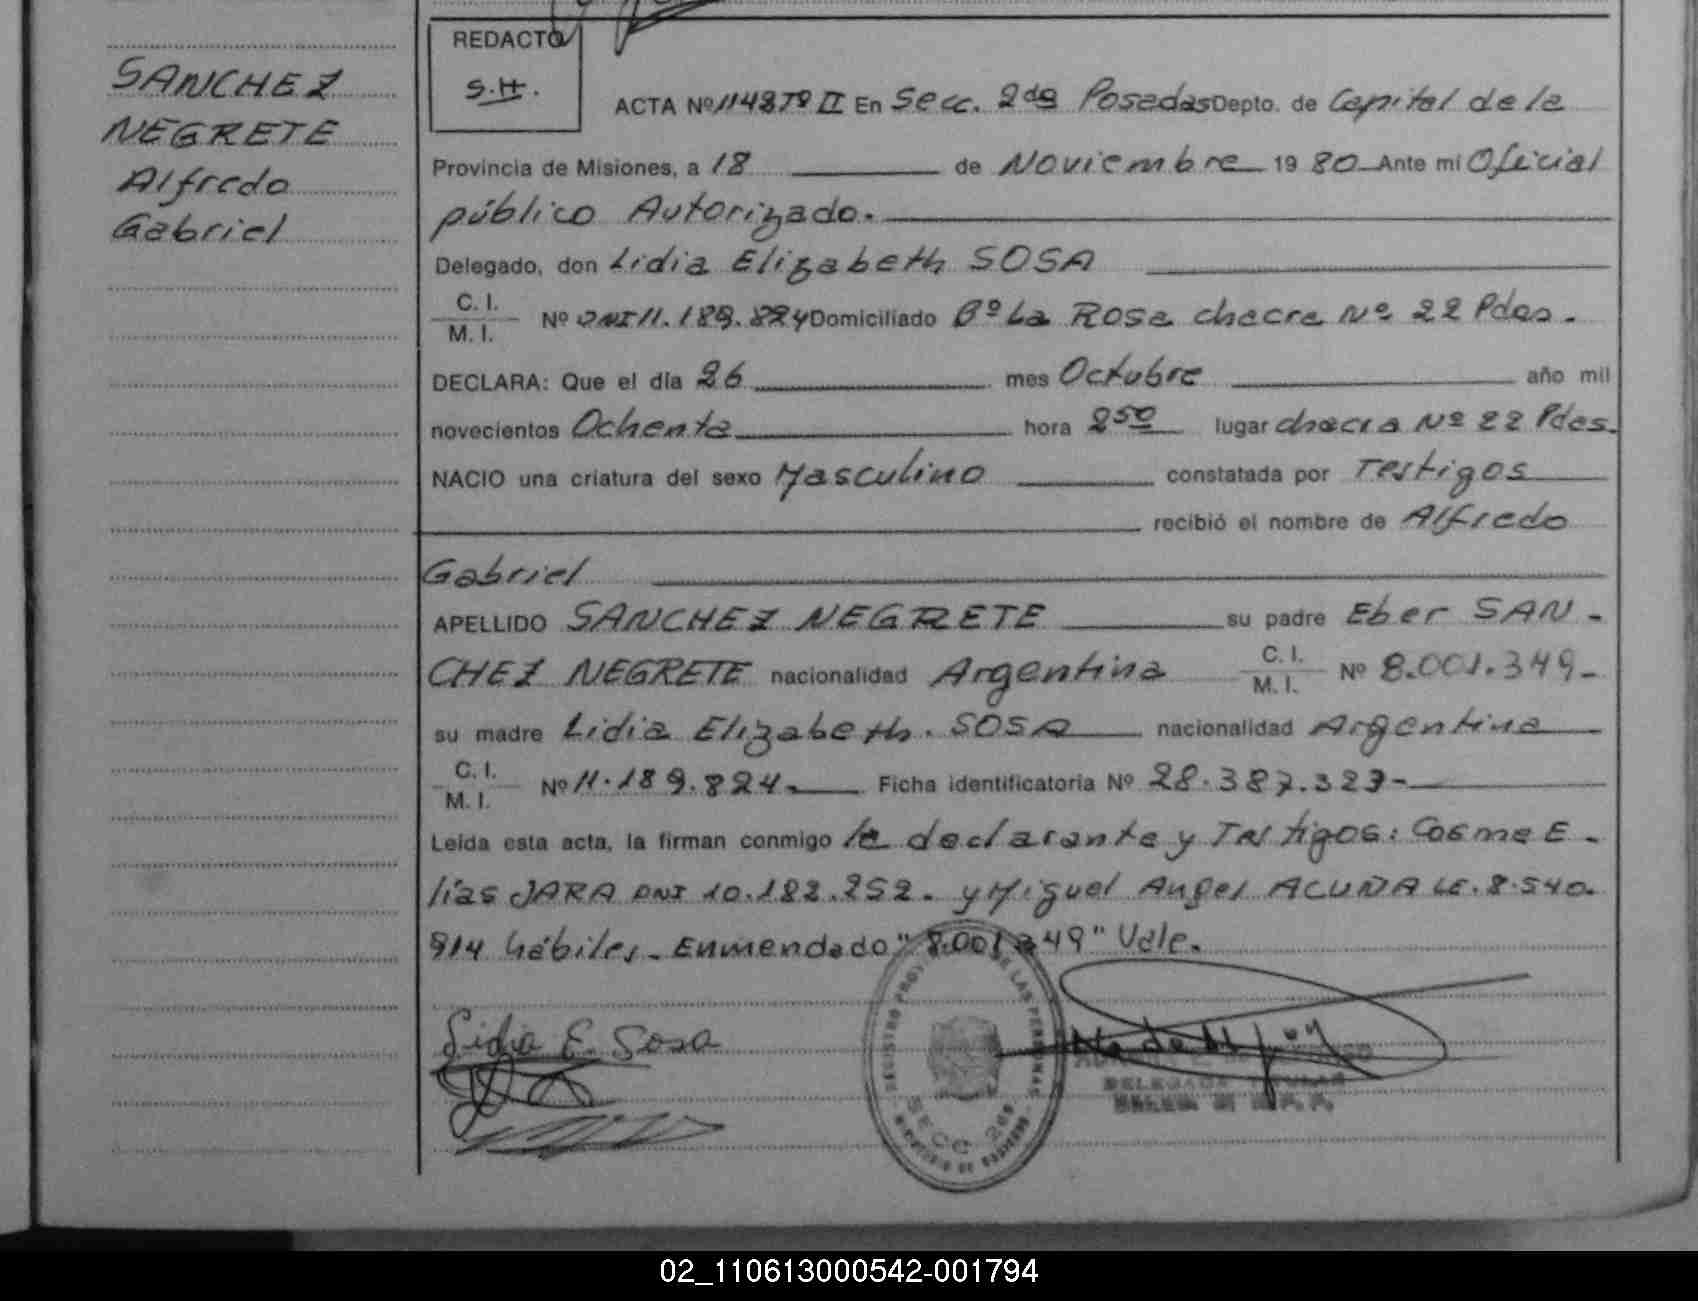 SANCHEZ
NEGRETE
Alfredo
Gabriel
REDACTO
S.H.
ACTA Nº 1148 Tº II En Secc. 2da Posadas Depto. de Capital de la
Provincia de Misiones, a 18 de Noviembre 1980 Ante mi Oficial
público Autorizado.
Delegado, don Lidia Elizabeth SOSA
C. I.
M. I. Nº DNI 11.189.824 Domiciliado Bº La Rosa chacra Nº 22 Pdas.
DECLARA: Que el día 26 mes Octubre año mil
novecientos Ochenta hora 2 50 lugar chacra Nº 22 Pdas.
NACIO una criatura del sexo Masculino constatada por Testigos
recibió el nombre de Alfredo
Gabriel
APELLIDO SANCHEZ NEGRETE su padre Eber SAN-
CHEZ NEGRETE nacionalidad Argentina C. I. M. I. Nº 8.001.349-
su madre Lidia Elizabeth. SOSA nacionalidad Argentina
C. I.
M. I. Nº 11.189.824. Ficha identificatoria Nº 28.387.323-
Leída esta acta, la firman conmigo la declarante y Testigos: Cosme E-
lías JARA DNI 10.182.252. y Miguel Angel ACUÑA LE. 8.540.
914 hábiles. Enmendado "8.001.349" Vale.
Lidia E. Sosa
REGISTRO PROV. DE LAS PERSONAS
SECC 2da
MINISTERIO DE GOBIERNO
DELEGADA TITULAR
02_110613000542-001794